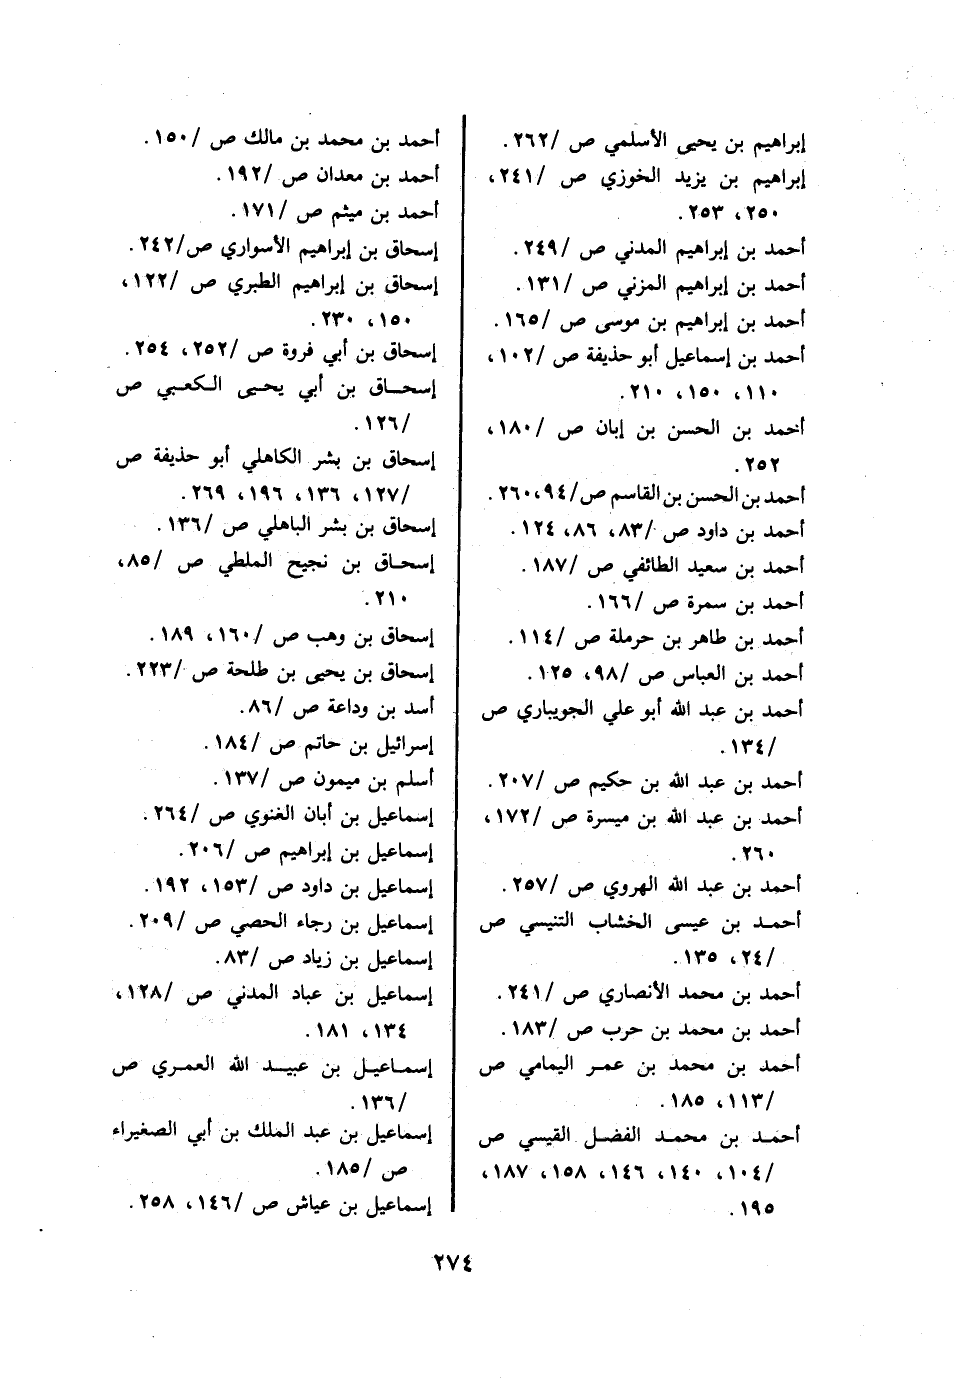 إبراهيم بن يحيى الأسلمي ص /٢٦٢.
إبراهيم بن يزيد الخوزي ص /٢٤١،
٢٥٠، ٢٥٣.
أحمد بن إبراهيم المدني ص /٢٤٩.
أحمد بن إبراهيم المزني ص /١٣١.
أحمد بن إبراهيم بن موسى ص /١٦٥.
أحمد بن إسماعيل أبو حذيفة ص /١٠٢،
١١٠، ١٥٠، ٢١٠.
أحمد بن الحسن بن إبان ص /١٨٠،
٢٥٢.
أحمد بن الحسن بن القاسم ص/٩٤، ٢٦٠.
أحمد بن داود ص /٨٣، ٨٦، ١٢٤.
أحمد بن سعيد الطائفي ص /١٨٧.
أحمد بن سمرة ص /١٦٦.
أحمد بن طاهر بن حرملة ص /١١٤.
أحمد بن العباس ص /٩٨، ١٢٥.
أحمد بن عبد الله أبو علي الجويباري ص
/١٣٤.
أحمد بن عبد الله بن حكيم ص /٢٠٧.
أحمد بن عبد الله بن ميسرة ص /١٧٢،
٢٦٠.
أحمد بن عبد الله الهروي ص /٢٥٧.
أحمد بن عيسى الخشاب التنيسي ص
/٢٤، ١٣٥.
أحمد بن محمد الأنصاري ص /٢٤١.
أحمد بن محمد بن حرب ص /١٨٣.
أحمد بن محمد بن عمر اليمامي ص
/١١٣، ١٨٥.
أحمد بن محمد الفضل القيسي ص
/١٠٤، ١٤٠، ١٤٦، ١٥٨، ١٨٧،
١٩٥.
أحمد بن محمد بن مالك ص /١٥٠.
أحمد بن معدان ص /١٩٢.
أحمد بن ميثم ص /١٧١.
إسحاق بن إبراهيم الأسواري ص/٢٤٢.
إسحاق بن إبراهيم الطبري ص /١٢٢،
١٥٠، ٢٣٠.
إسحاق بن أبي فروة ص /٢٥٢، ٢٥٤.
إسحاق بن أبي يحيى الكعبي ص
/١٢٦.
إسحاق بن بشر الكاهلي أبو حذيفة ص
/١٢٧، ١٣٦، ١٩٦، ٢٦٩.
إسحاق بن بشر الباهلي ص /١٣٦.
إسحاق بن نجيح الملطي ص /٨٥،
٢١٠.
إسحاق بن وهب ص /١٦٠، ١٨٩.
إسحاق بن يحيى بن طلحة ص /٢٢٣.
أسد بن وداعة ص /٨٦.
إسرائيل بن حاتم ص /١٨٤.
أسلم بن ميمون ص /١٣٧.
إسماعيل بن أبان الغنوي ص /٢٦٤.
إسماعيل بن إبراهيم ص /٢٠٦.
إسماعيل بن داود ص /١٥٣، ١٩٢.
إسماعيل بن رجاء الحصي ص /٢٠٩.
إسماعيل بن زياد ص /٨٣.
إسماعيل بن عباد المدني ص /١٢٨،
١٣٤، ١٨١.
إسماعيل بن عبيد الله العمري ص
/١٣٦.
إسماعيل بن عبد الملك بن أبي الصغيراء
ص /١٨٥.
إسماعيل بن عياش ص /١٤٦، ٢٥٨.
٢٧٤